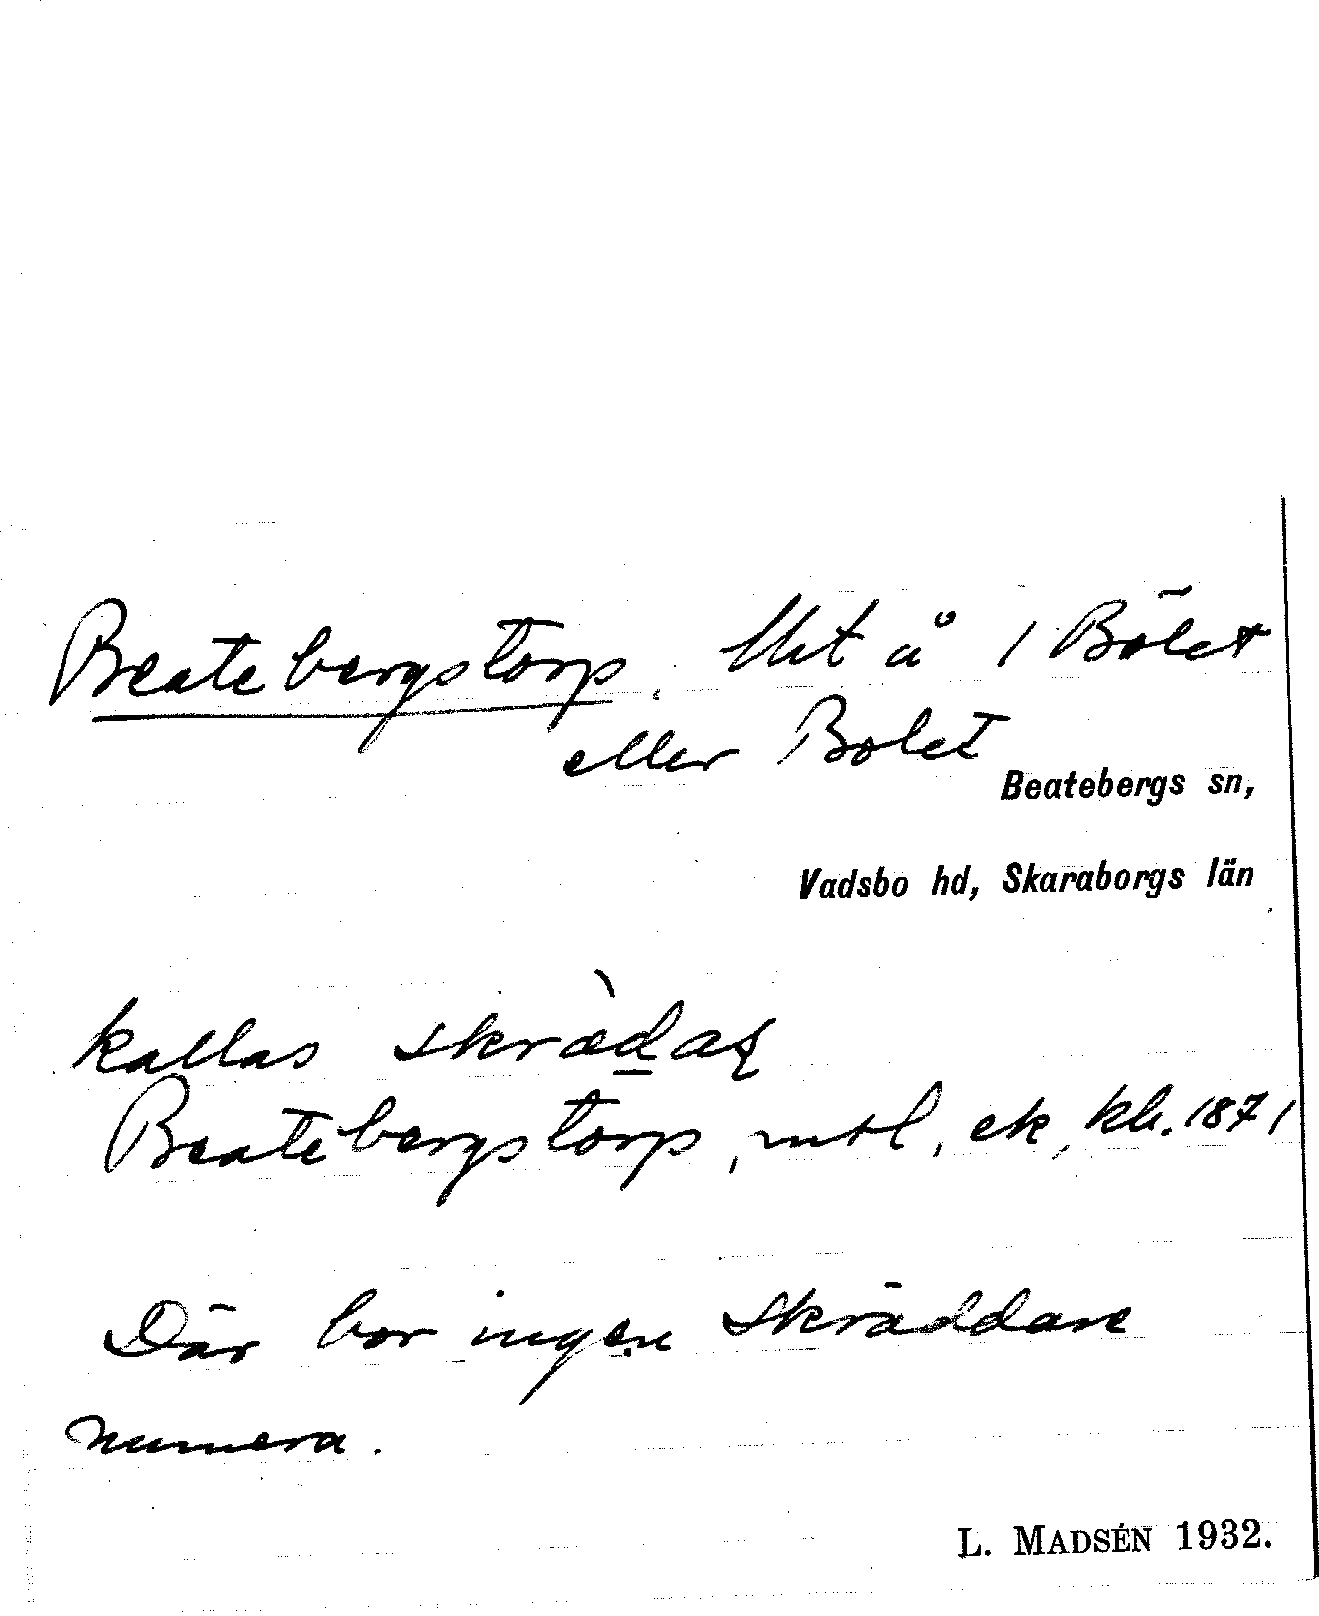 Beatebergstorp. Uht å 1 Bölet
eller Bolet
Beatebergs sn,
Vadsbo hd, Skaraborgs län
kallas
Beatebergstorp, mtl, ek, kb. 1871
Där bor ingen skräddare
numera.
L. MADSÉN 1932.